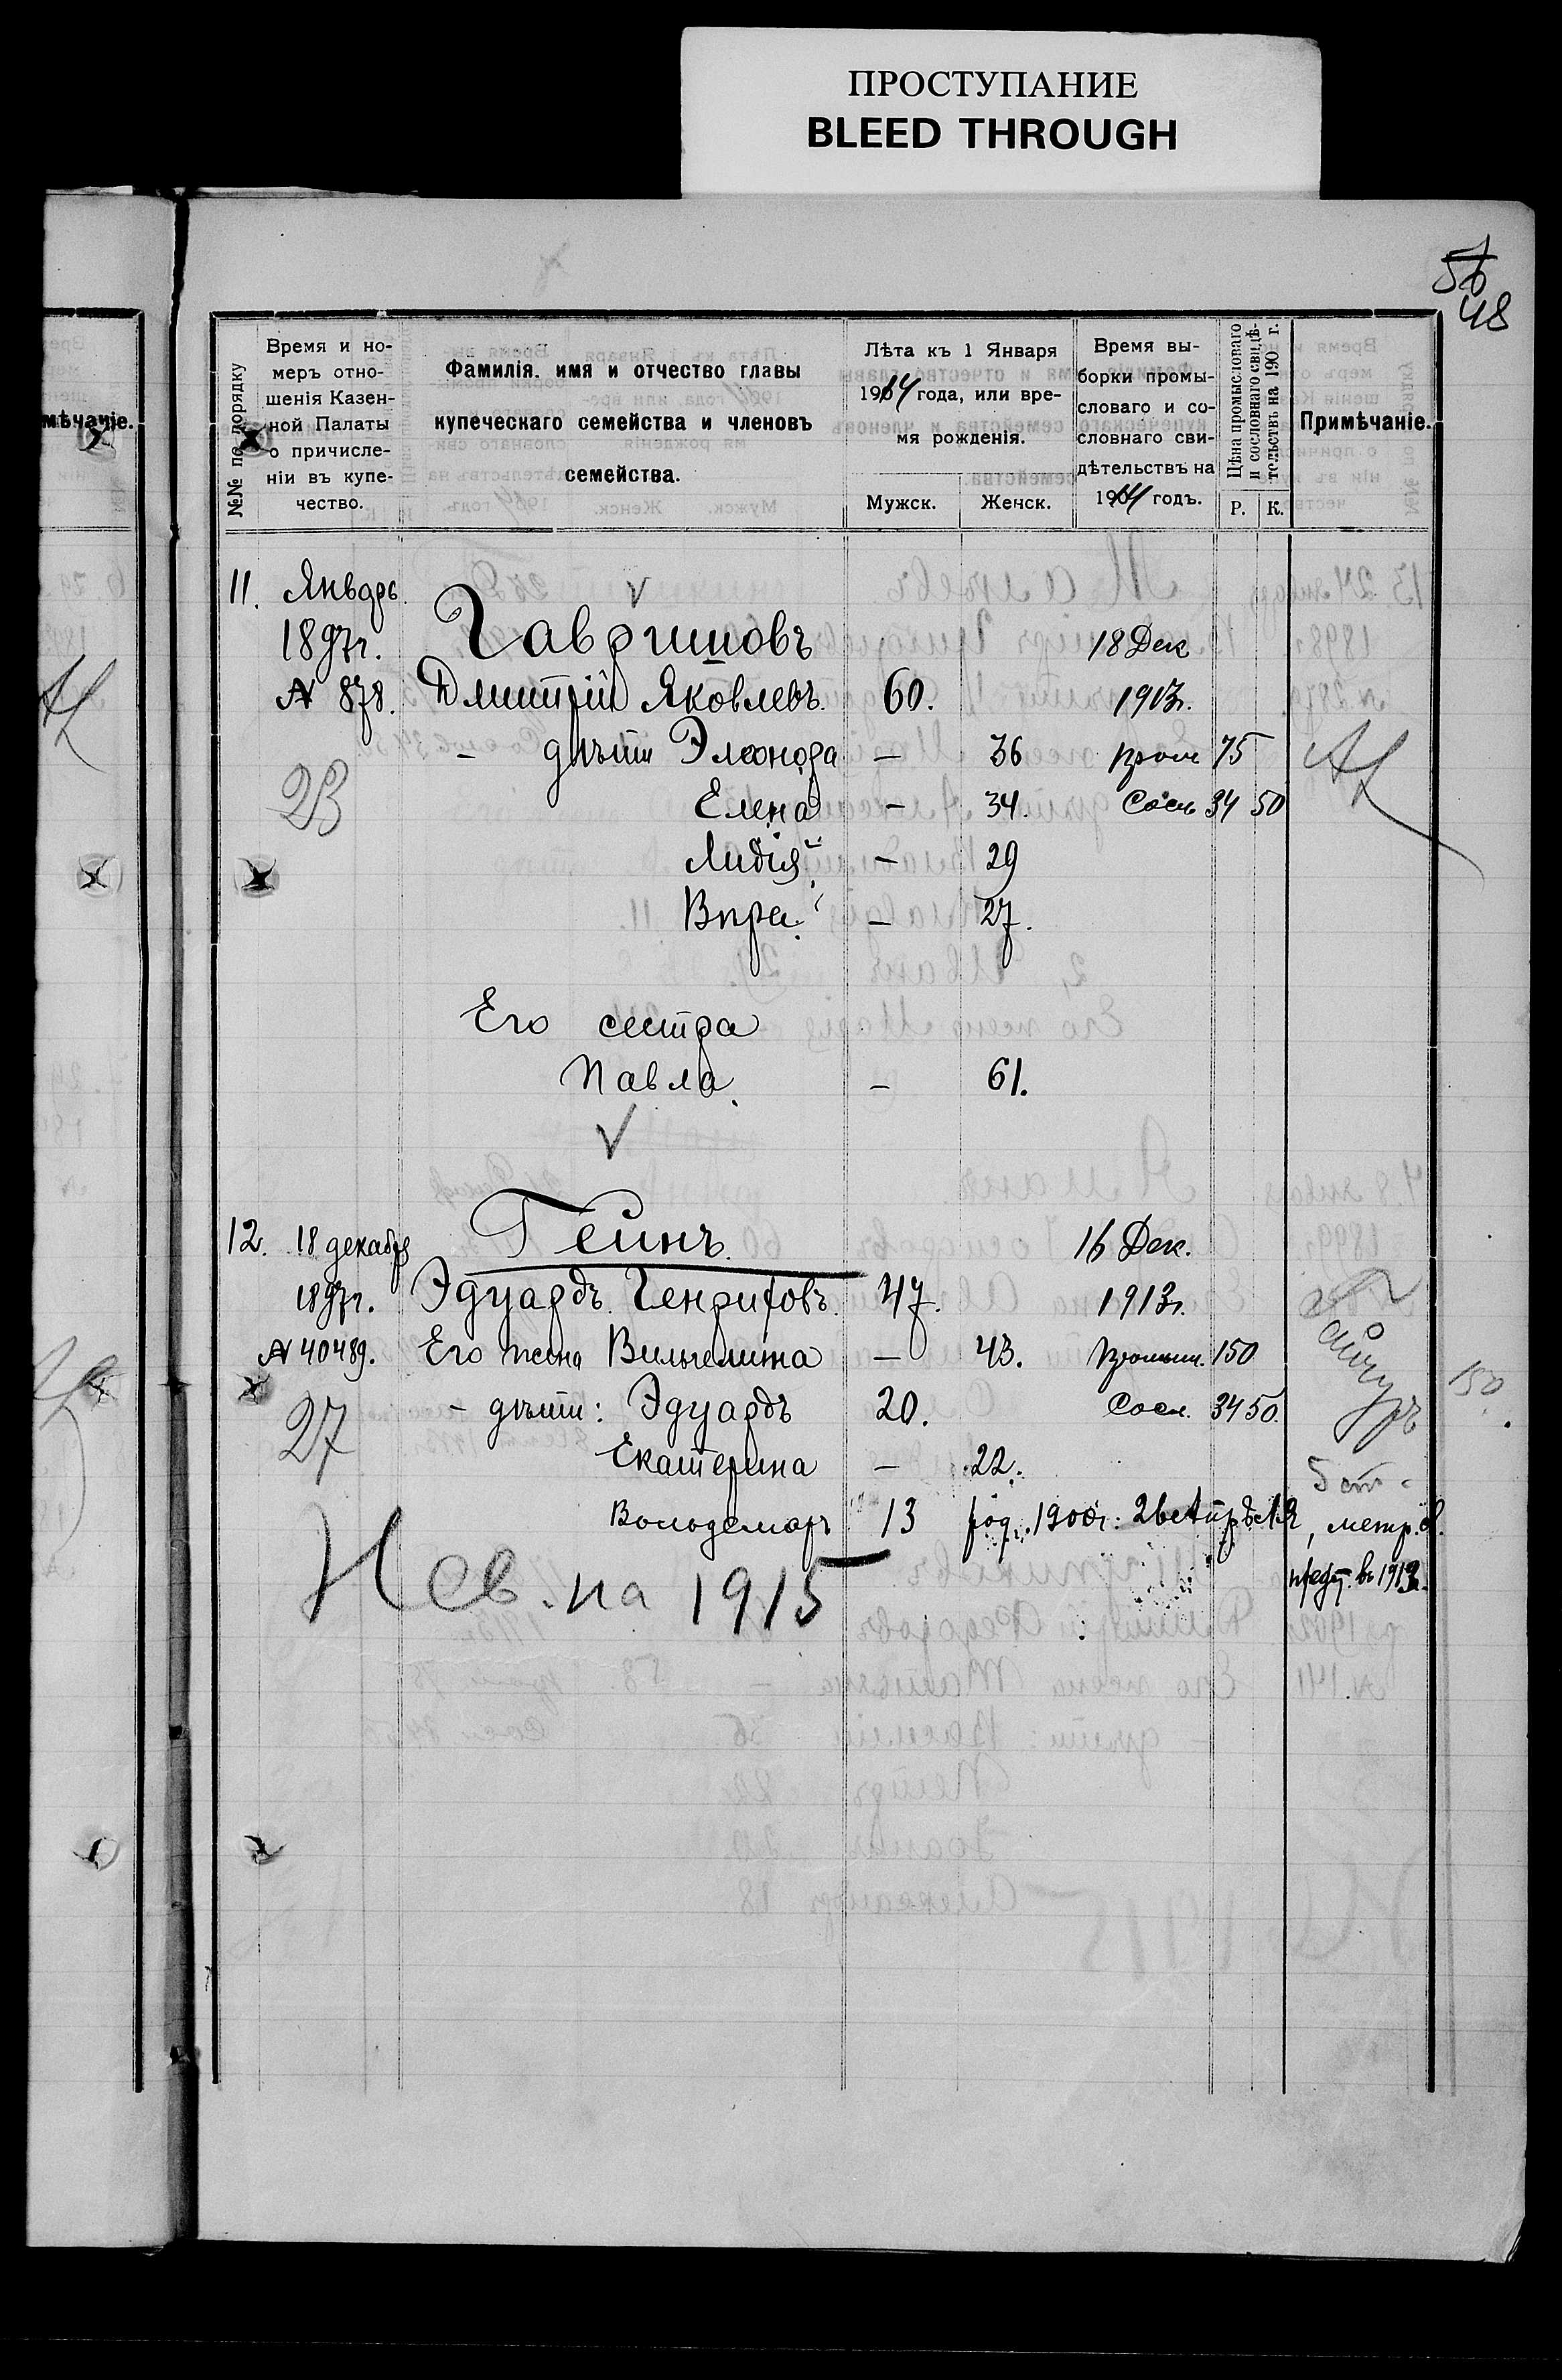 ПРОСТУПАНИЕ
BLEED THROUGH
56
48
мѣчаніе.
№№ по порядку
Время и но-
меръ отно-
шенія Казен-
ной Палаты
о причисле-
ніи въ купе-
чество.
Фамилія, имя и отчество главы
купеческаго семейства и членовъ
семейства.
Лѣта къ 1 Января
1914 года, или вре-
мя рожденія.
Мужск. Женск.
Время вы-
борки промы-
словаго и со-
словнаго сви-
дѣтельствъ на
1914 годъ.
Цѣна промысловаго
и сословнаго свидѣ-
тельствъ на 190 г.
Р. К.
Примѣчаніе.
11. Январь
1897г. Гавриловъ 18 Дек
№ 878. Дмитрій Яковлевъ. 60. 1913г.
– дѣти Элеонора – 36 пром 75
23 Елена – 34. Сосл 34 50
Лидія – 29
Вѣра – 27.
Его сестра
Павла. – 61.
12. 18 декабря Гейнъ. 16 Дек.
1897г. Эдуардъ Генриховъ. 47. 1913г.
№ 40489. Его жена Вильгелмина – 43. промыш. 150
– дѣти: Эдуардъ 20. Сосл. 34 50. 150
27 Екатерина – 22.
5 ст.
Вольдемаръ 13 род. 1900г. , метр.
предст. въ 1913г.
Нев. на 1915